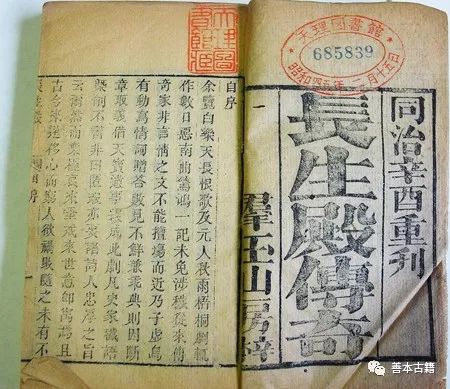 天理圖書館
685839
同治辛酉重刊
長生殿傳奇
羣玉山房梓
天理圖書館藏
自序
余覽白樂天長恨歌及元人秋雨梧桐劇輒
作數日惡南曲驚鴻一記未免涉穢從來傳
奇家非言情之文不能擅場而近乃子虛烏
有動寫情詞贈答數見不鮮兼乖典則因斷
章取義借天寶遺事綴成此劇凡史家穢語
槩削不書非曰匿瑕亦要諸詩人忠厚之旨
云爾然而樂極哀來垂戒來世意即寓焉且
古今來逞侈心而窮人欲禍敗隨之未有不
長生殿 自序
善本古籍